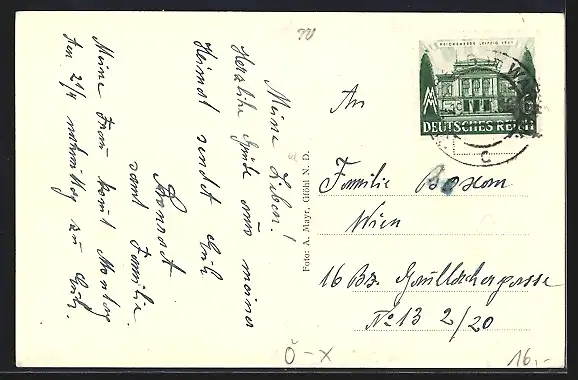 Meine Lieben!
Herzliche Grüße aus meiner
Heimat sendet Euch
samt Familie.
Meine Frau kommt Montag
den 21/4 nachmittag zu Euch.
Foto: A. Mayr, Gföhl N. D.
REICHSMESSE LEIPZIG 1941
DEUTSCHES REICH
An
Familie
Wien
16 Bz.
No 13 2/20
Ö-X
16,-